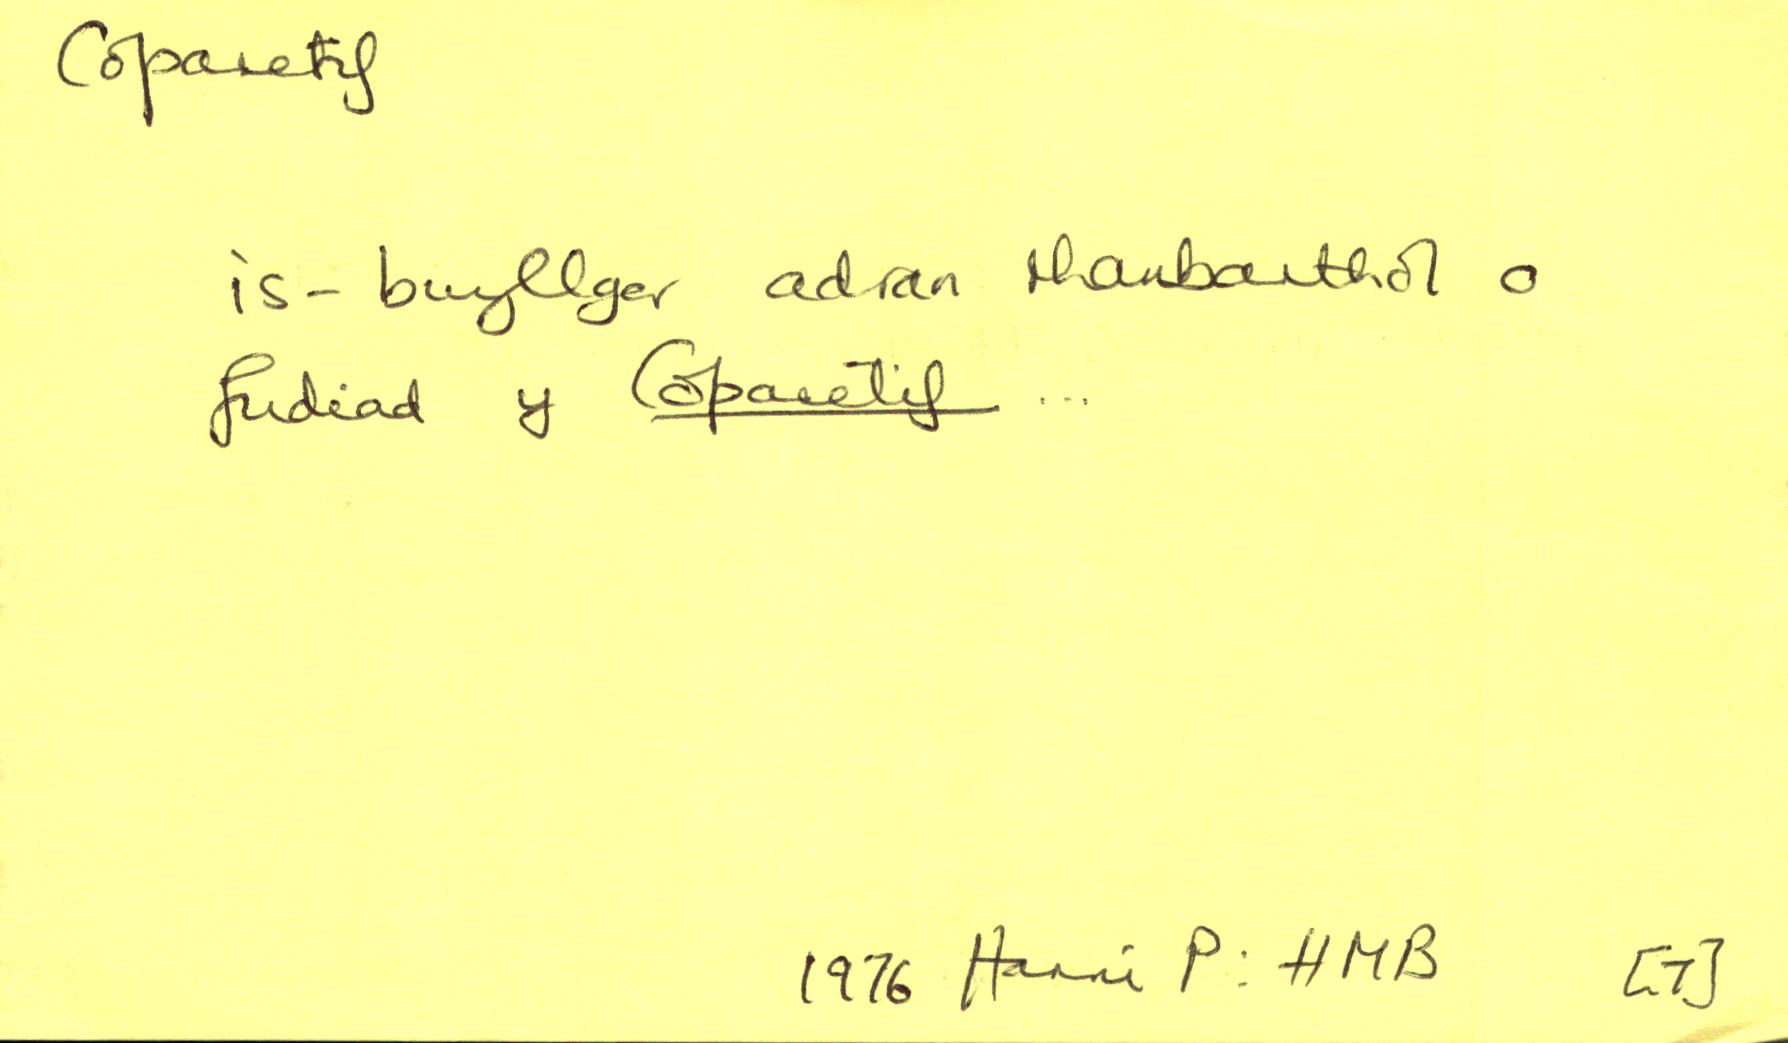 Coparetif
is-bwyllgor adran rhanbarthol o
fudiad y Coparetif ...
1976 Harri P: HMB [7]